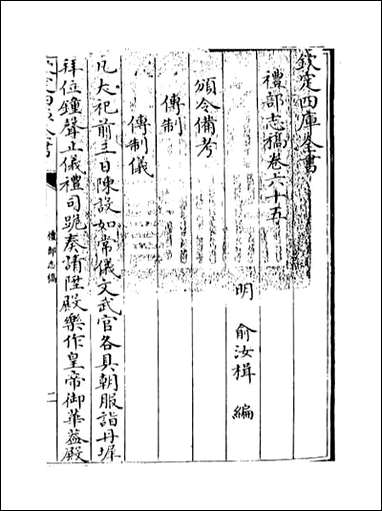 欽定四庫全書
禮部志稿卷六十五
明 俞汝楫 編
頒令備考
傳制
傳制儀
凡大祀前三日陳設如常儀文武官各具朝服詣丹墀
拜位鐘聲止儀禮司跪奏請陞殿樂作皇帝御華葢殿
欽定四庫全書
禮部志稿